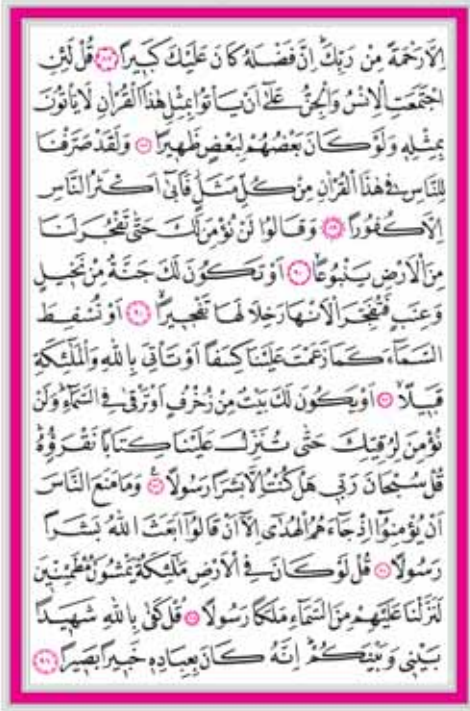 اِلَّا رَحْمَةً مِنْ رَبِّكَۜ اِنَّ فَضْلَهُ كَانَ عَلَيْكَ كَب۪يرًا ﴿٨٧﴾ قُلْ لَئِنِ
اجْتَمَعَتِ الْاِنْسُ وَالْجِنُّ عَلٰٓى اَنْ يَأْتُوا بِمِثْلِ هٰذَا الْقُرْاٰنِ لَا يَأْتُونَ
بِمِثْلِه۪ وَلَوْ كَانَ بَعْضُهُمْ لِبَعْضٍ ظَه۪يرًا ﴿٨٨﴾ وَلَقَدْ صَرَّفْنَا
لِلنَّاسِ ف۪ي هٰذَا الْقُرْاٰنِ مِنْ كُلِّ مَثَلٍۘ فَاَبٰٓى اَكْثَرُ النَّاسِ
اِلَّا كُفُورًا ﴿٨٩﴾ وَقَالُوا لَنْ نُؤْمِنَ لَكَ حَتّٰى تَفْجُرَ لَنَا
مِنَ الْاَرْضِ يَنْبُوعًاۙ ﴿٩٠﴾ اَوْ تَكُونَ لَكَ جَنَّةٌ مِنْ نَخ۪يلٍ
وَعِنَبٍ فَتُفَجِّرَ الْاَنْهَارَ خِلَالَهَا تَفْج۪يرًاۙ ﴿٩١﴾ اَوْ تُسْقِطَ
السَّمَٓاءَ كَمَا زَعَمْتَ عَلَيْنَا كِسَفًا اَوْ تَأْتِيَ بِاللّٰهِ وَالْمَلٰٓئِكَةِ
قَب۪يلًاۙ ﴿٩٢﴾ اَوْ يَكُونَ لَكَ بَيْتٌ مِنْ زُخْرُفٍ اَوْ تَرْقٰى فِي السَّمَٓاءِۜ وَلَنْ
نُؤْمِنَ لِرُقِيِّكَ حَتّٰى تُنَزِّلَ عَلَيْنَا كِتَابًا نَقْرَؤُ۬هُۜ
قُلْ سُبْحَانَ رَبّ۪ي هَلْ كُنْتُ اِلَّا بَشَرًا رَسُولًا ﴿٩٣﴾ وَمَا مَنَعَ النَّاسَ
اَنْ يُؤْمِنُٓوا اِذْ جَٓاءَهُمُ الْهُدٰٓى اِلَّٓا اَنْ قَالُٓوا اَبَعَثَ اللّٰهُ بَشَرًا
رَسُولًا ﴿٩٤﴾ قُلْ لَوْ كَانَ فِي الْاَرْضِ مَلٰٓئِكَةٌ يَمْشُونَ مُطْمَئِنّ۪ينَ
لَنَزَّلْنَا عَلَيْهِمْ مِنَ السَّمَٓاءِ مَلَكًا رَسُولًا ﴿٩٥﴾ قُلْ كَفٰى بِاللّٰهِ شَه۪يدًا
بَيْن۪ي وَبَيْنَكُمْۜ اِنَّهُ كَانَ بِعِبَادِه۪ خَب۪يرًا بَص۪يرًا ﴿٩٦﴾